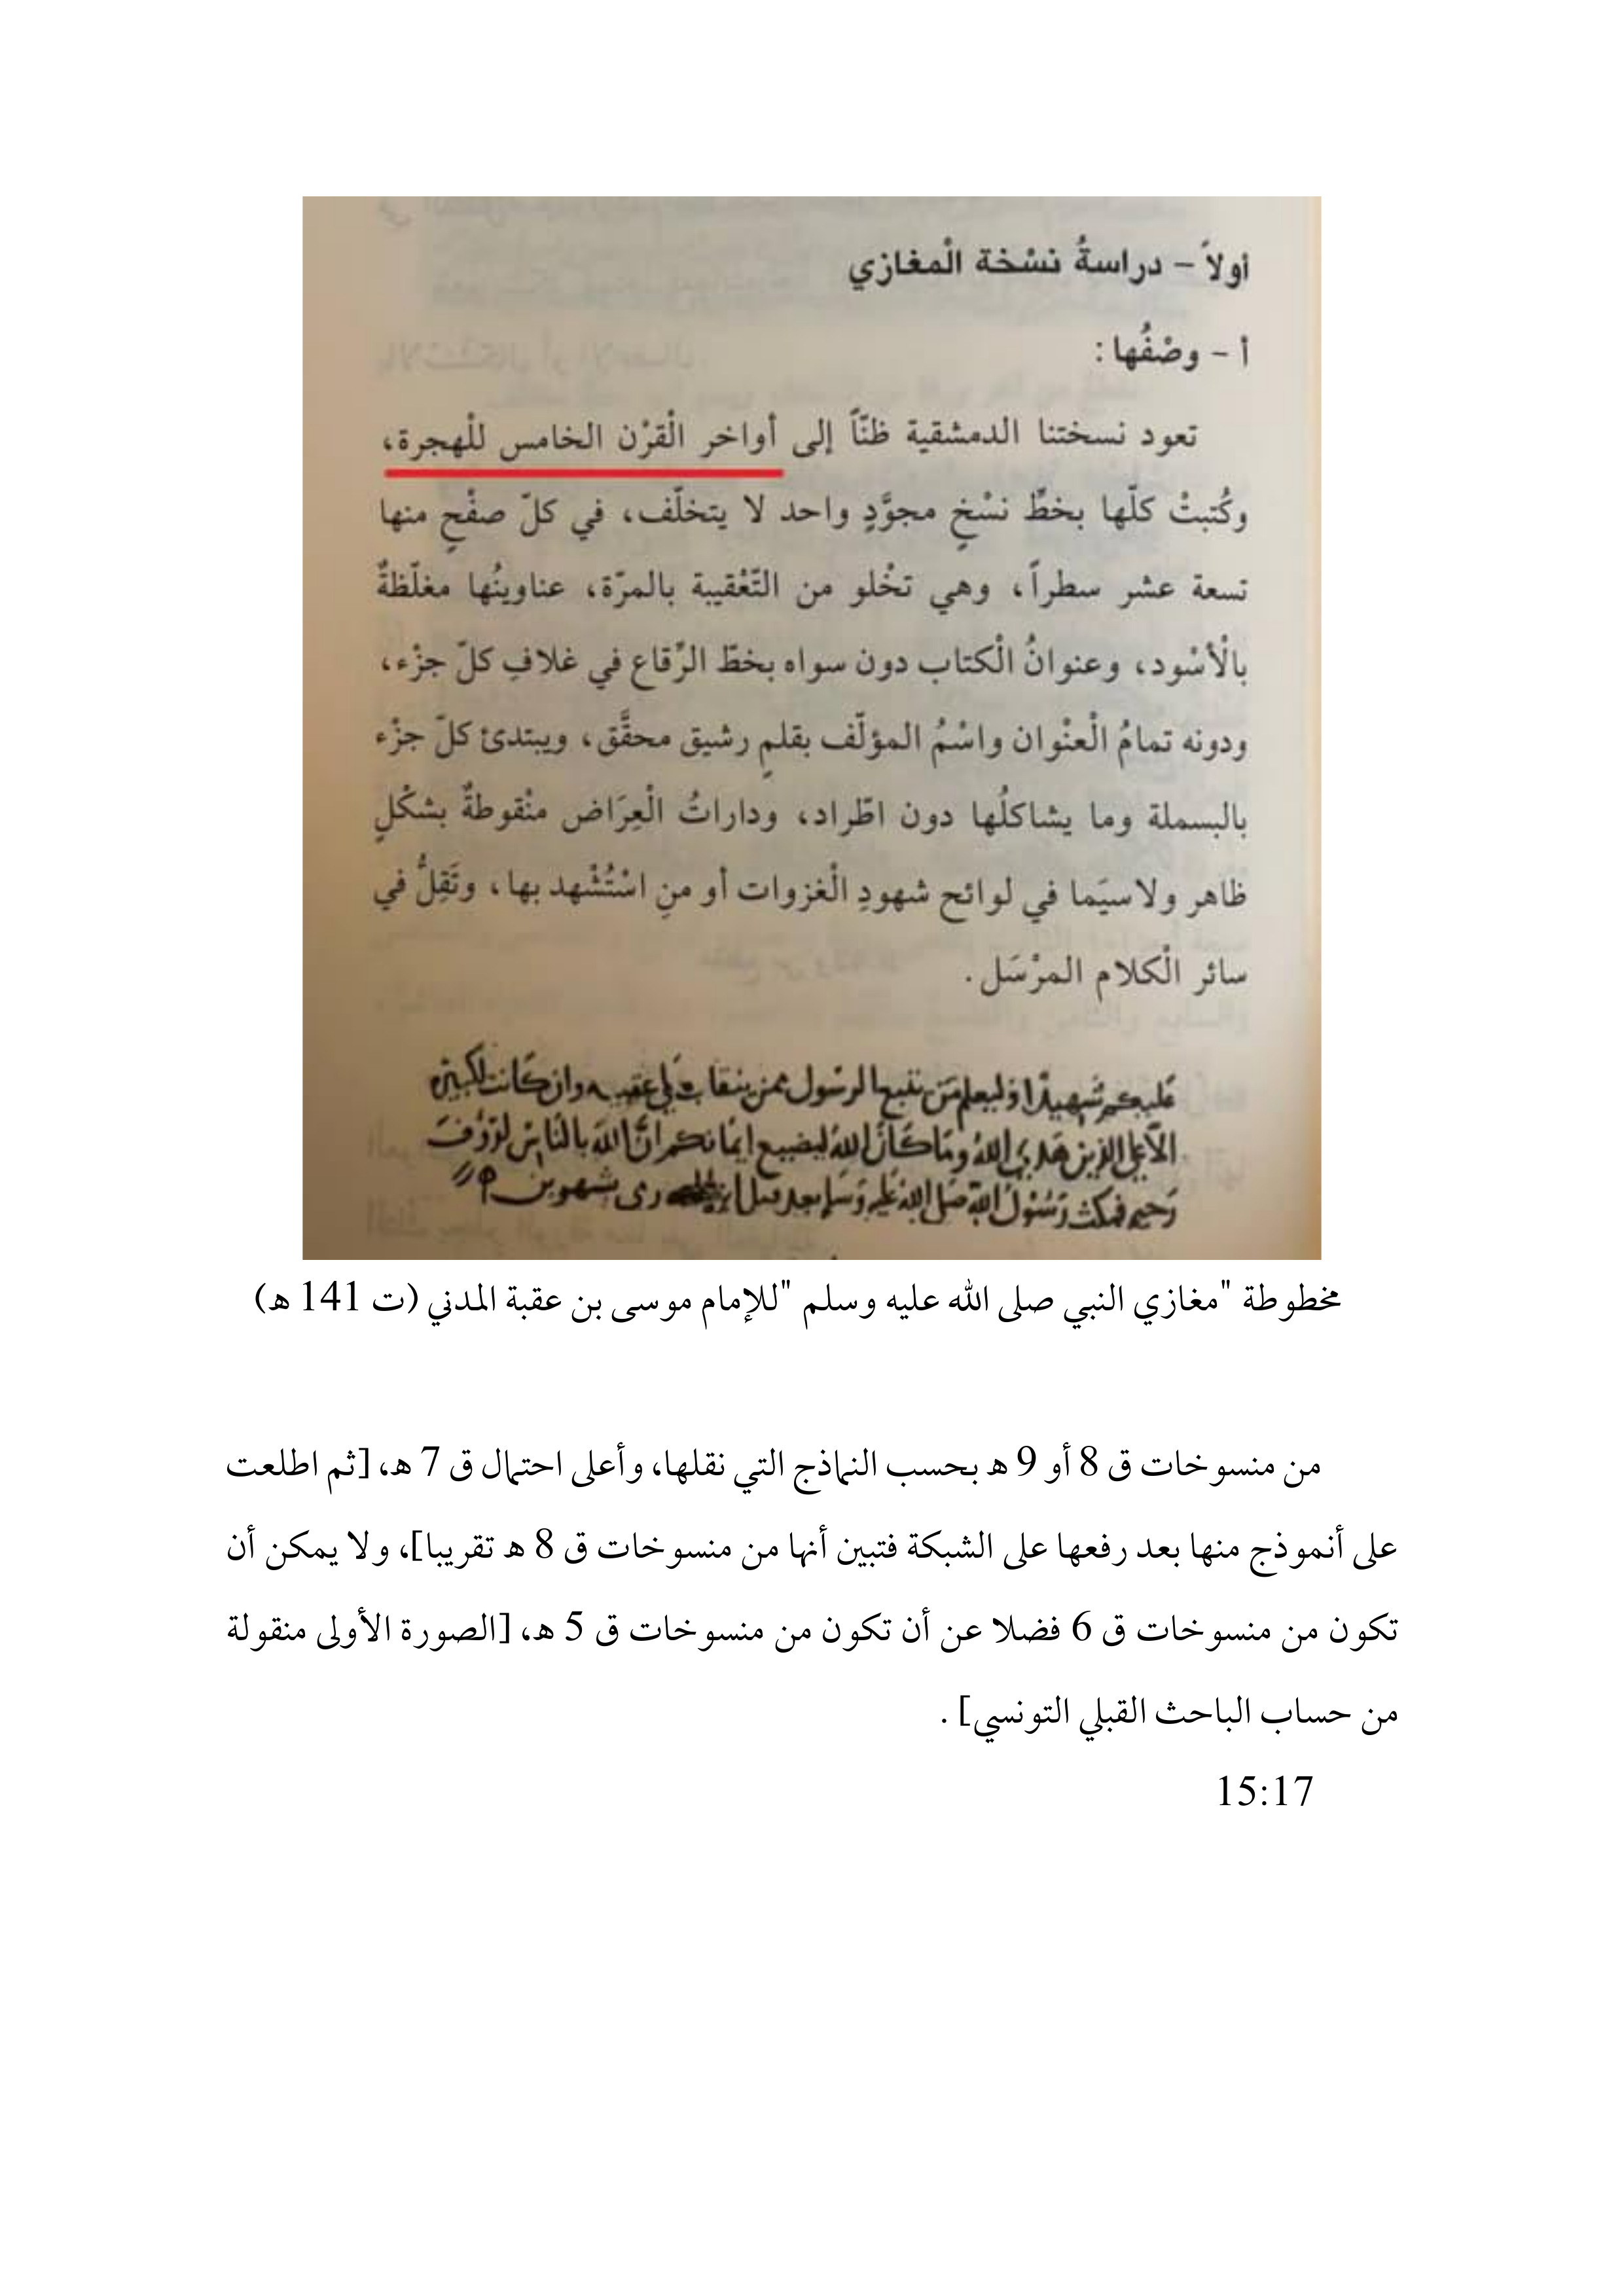 أولاً – دراسةُ نسْخة الْمغازي
أ – وصْفُها :
تعود نسختنا الدمشقية ظنّاً إلى أواخر الْقرْن الخامس للْهجرة،
وكُتبتْ كلّها بخطِّ نسْخٍ مجوَّدٍ واحد لا يتخلّف، في كلّ صفْحٍ منها
تسعة عشر سطراً، وهي تخْلو من التّعْقيبة بالمرّة، عناوينُها مغلّظةٌ
بالْأسْود، وعنوانُ الْكتاب دون سواه بخطّ الرِّقاع في غلافِ كلّ جزْء،
ودونه تمامُ الْعنْوان واسْمُ المؤلّف بقلمٍ رشيق محقَّق، ويبتدئ كلّ جزْء
بالبسملة وما يشاكلُها دون اطّراد، وداراتُ الْعِرَاض منْقوطةٌ بشكْلٍ
ظاهر ولاسيَما في لوائح شهودِ الْغزوات أو منِ اسْتُشْهد بها، وتَقِلُّ في
سائر الْكلام المرْسَل .
عليكم شهيدًا وليعلم من يتبع الرسول ممن ينقلب على عقبيه وان كانت لكبيرة
الا على الذين هدى الله وما كان الله ليضيع ايمانكم ان الله بالناس لرؤف
رحيم فمكث رسول الله صلى الله عليه وسلم بعد شهرين
مخطوطة "مغازي النبي صلى الله عليه وسلم "للإمام موسى بن عقبة المدني (ت 141 هـ)
من منسوخات ق 8 أو 9 هـ بحسب النماذج التي نقلها، وأعلى احتمال ق 7 هـ، [ثم اطلعت
على أنموذج منها بعد رفعها على الشبكة فتبين أنها من منسوخات ق 8 هـ تقريبا]، ولا يمكن أن
تكون من منسوخات ق 6 فضلا عن أن تكون من منسوخات ق 5 هـ، [الصورة الأولى منقولة
من حساب الباحث القبلي التونسي] .
15:17